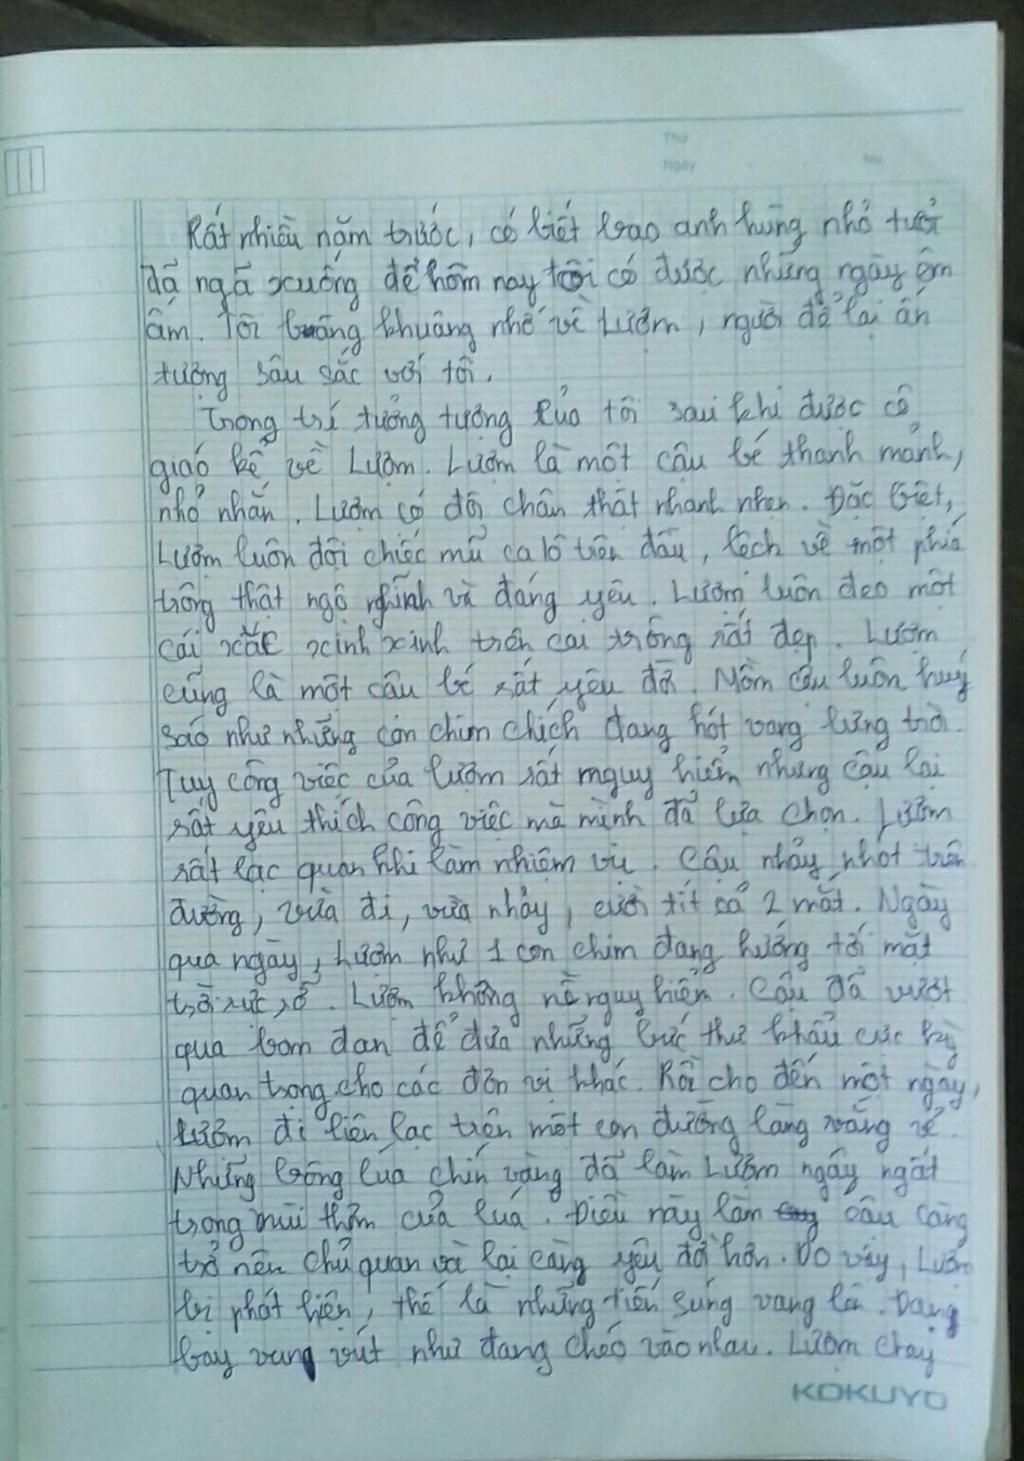 Thứ
Ngày
No
Rất nhiều năm trước, có biết bao anh hùng nhỏ tuổi
đã ngã xuống để hôm nay tôi có được những ngày êm
ấm. Tôi bâng khuâng nhớ về Lượm, người để lại ấn
tượng sâu sắc với tôi.
Trong trí tưởng tượng của tôi sau khi được cô
giáo kể về Lượm. Lượm là một cậu bé thanh mảnh,
nhỏ nhắn. Lượm có đôi chân thật nhanh nhẹn. Đặc biệt,
Lượm luôn đội chiếc mũ ca lô trên đầu, lệch về một phía
trông thật ngộ nghĩnh và đáng yêu. Lượm luôn đeo một
cái xắc xinh xinh trên cai trông rất đẹp. Lượm
cũng là một cậu bé rất yêu đời. Mồm cậu luôn huýt
sáo như những con chim chích đang hót vang lừng trời.
Tuy công việc của lượm rất nguy hiểm nhưng cậu lại
rất yêu thích công việc mà mình đã lựa chọn. Lượm
rất lạc quan khi làm nhiệm vụ. Cậu nhảy nhót trên
đường, vừa đi, vừa nhảy, cười tít cả 2 mắt. Ngày
qua ngày, Lượm như 1 con chim đang hướng tới mặt
trời rực rỡ. Lượm không nề nguy hiểm. Cậu đã vượt
qua bom đạn để đưa những bức thư khẩu cực kỳ
quan trọng cho các đơn vị khác. Rồi cho đến một ngày,
Lượm đi liên lạc trên một con đường làng vắng vẻ.
Những bông lúa chín vàng đã làm Lượm ngây ngất
trong mùi thơm của lúa. Điều này làm cậu càng
trở nên chủ quan và lại càng yêu đời hơn. Do vậy, Lượm
bị phát hiện, thế là những tiếng súng vang lên. Đạn
bay vung vút như đang chéo vào nhau. Lượm chạy
KOKUYO